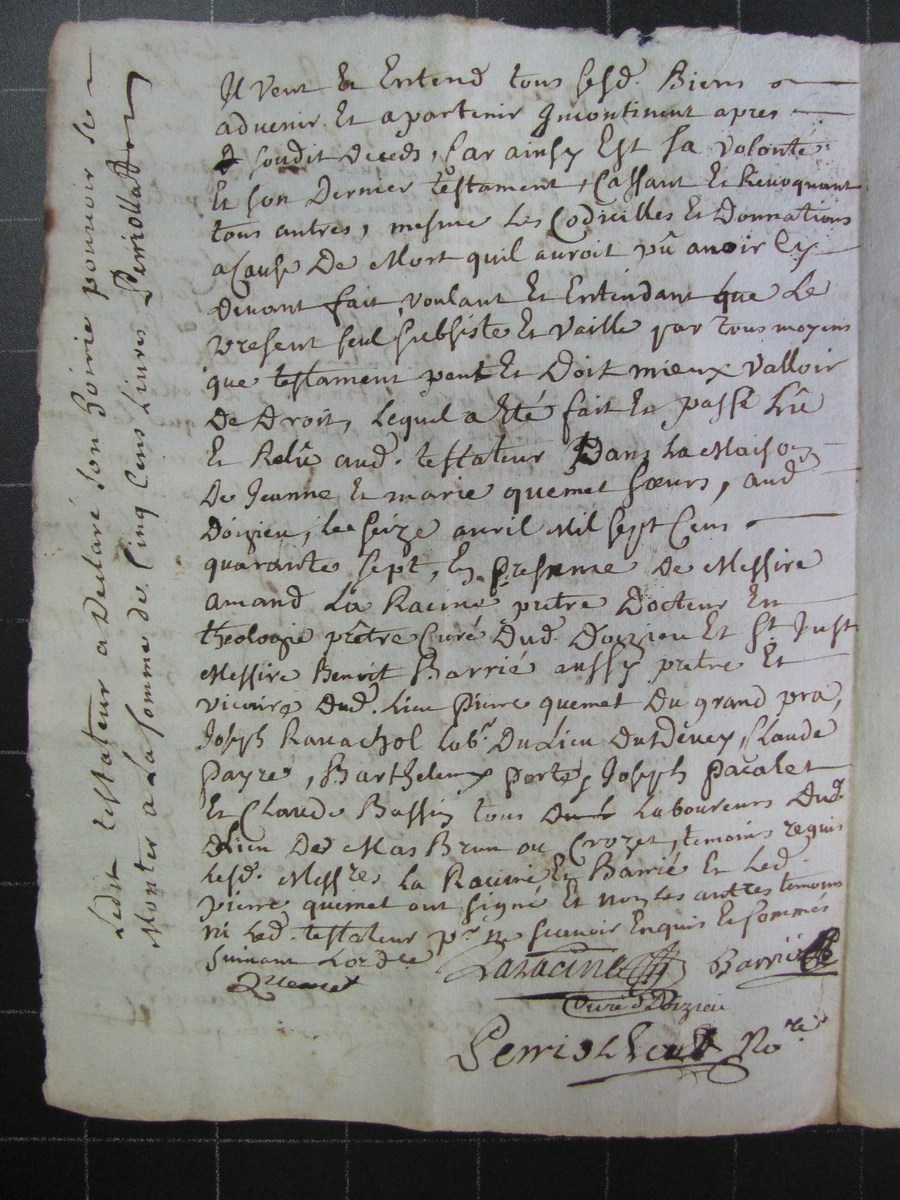 Il veut Et Entend tous sesd. Biens
advenir Et apartenir Incontinent apres
soudit deceds, Car ainsy Est sa volonté
Et son Dernier testament, Cassant Et Revoquant
tous autres, mesme les Codicilles Et Donnations
a Cause De Mort quil auroit pû avoir Cy
devant fait, voulant Et Entendant que Le
present seul subsiste Et vaille par tous moyens
que testament peut Et Doit mieux valloir
De Droit, Lequel a Eté fait Et passé Lû
Et Relû aud. testateur Dans La Maison
De Jeanne Et marie quemet sœurs, aud
Doizieu, le seize avril Mil sept Cens
quarante sept, En presence De Messire
amand La Racine pretre Docteur En
theologie prêtre Curé Dud. Doizieu Et St. Just
Messire Benoit Barrié aussy pretre Et
vicaire Dud. Lieu Pierre quemet Du grand pra,
Joseph Ravachol Labr. Du Lieu Du, Claude
Payre, Barthelemy Porte, Joseph Pacalet
Et Claude Bassin tous Laboureurs Dud.
Lieu Des Mas Brun ou Crozet, temoins requis
Lesd. Messres La Racine Et Barrié Et Led.
Pierre quemet ont signé Et non Les autres temoins
ni Led. testateur pr. ne scavoir Enquis Et sommés
suivant Lord.ce
Laracine Barrié
Quemet
Curé d Doizieu
Perriolhat No.re
Ledit testateur a Declaré son hoirie pouvoir se
Monter a La somme de Cinq Cens Livres Perriollat